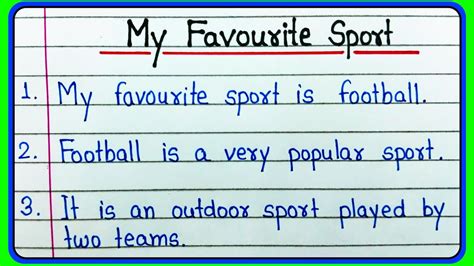 My Favourite Sport
1. My favourite sport is football.
2. Football is a very popular sport.
3. It is an outdoor sport played by
two teams.